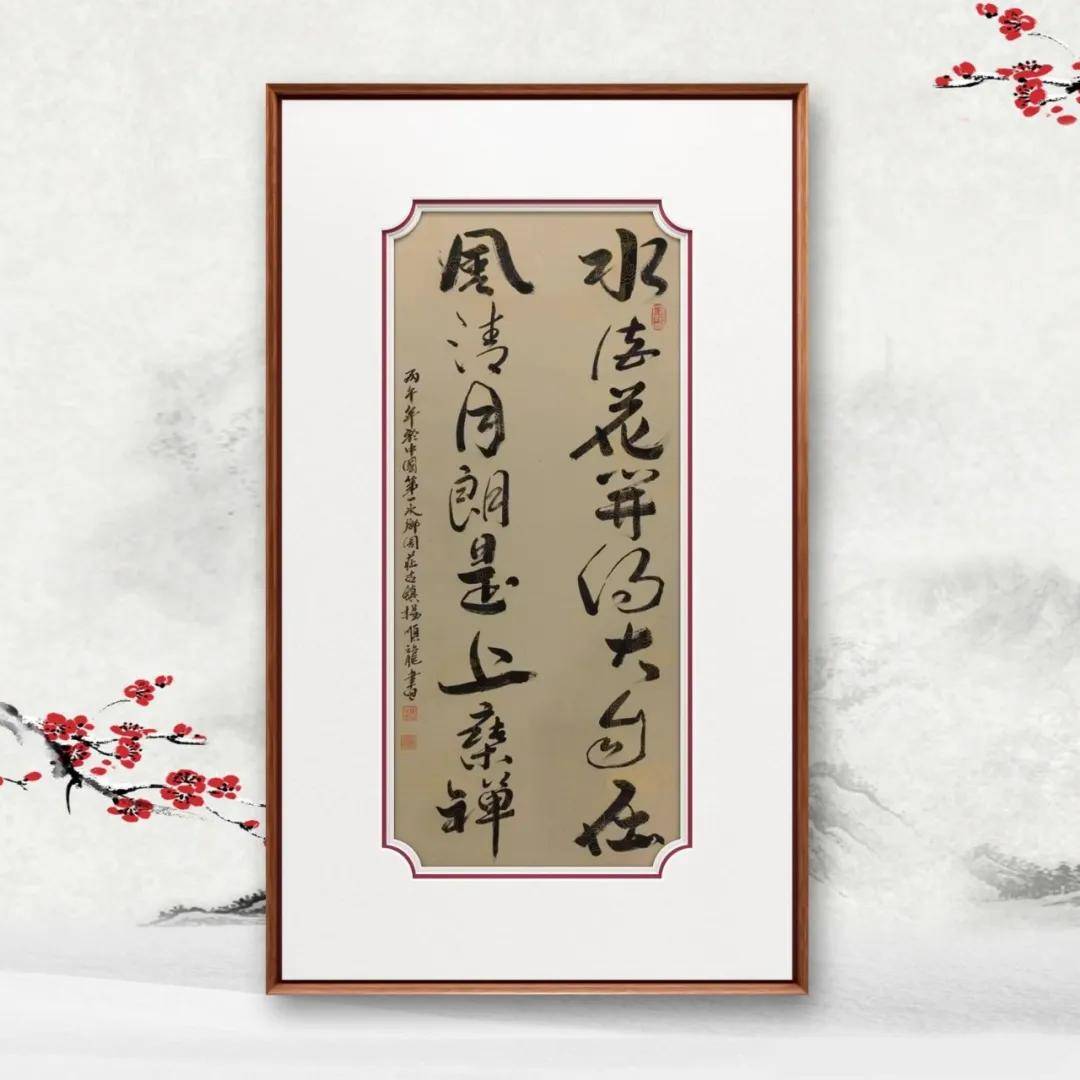 水流花開得大自在
風清月朗是上乘禪
丙午年於中國第一水鄉周莊古鎮楊順龍書